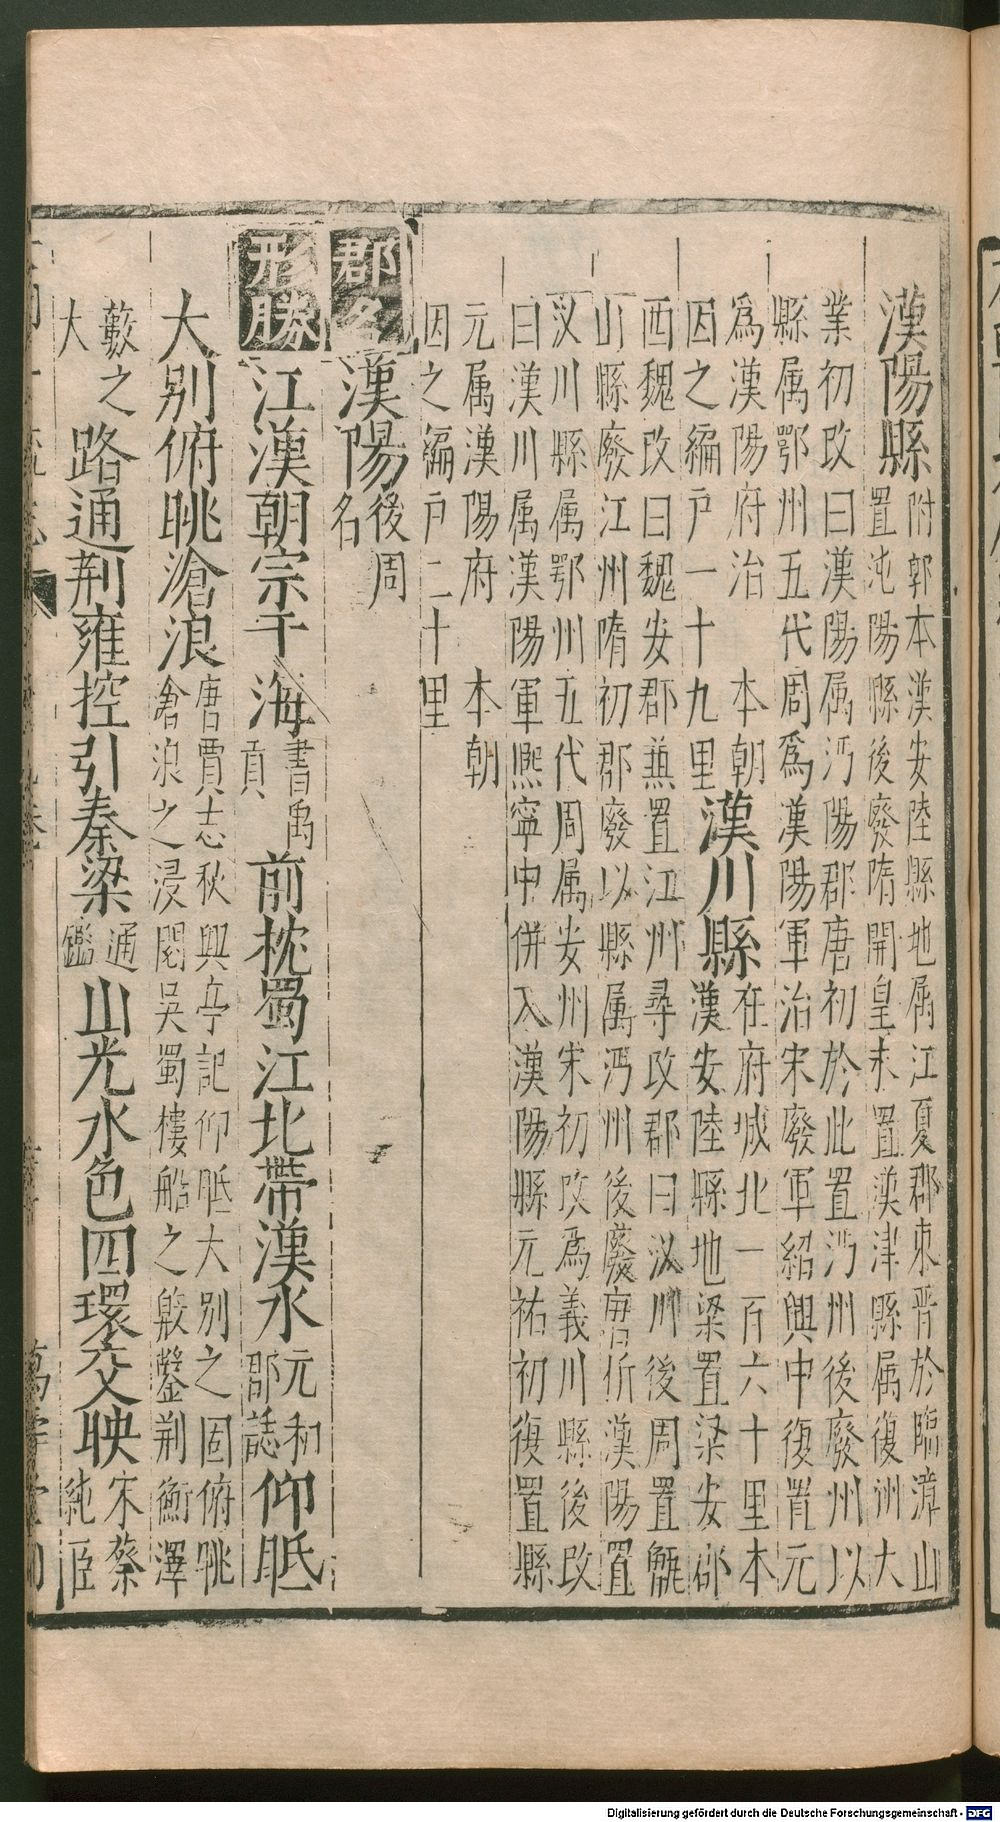 漢陽縣
附郭本漢安陸縣地屬江夏郡東晋於臨漳山
置沌陽縣後廢隋開皇末置漢津縣属復州大
業初改曰漢陽属沔陽郡唐初於此置沔州後廢州以
縣属鄂州五代周爲漢陽軍治宋廢軍紹興中復置元
爲漢陽府治 本朝
因之編户一十九里
漢川縣
在府城北一百六十里本
漢安陸縣地梁置梁安郡
西魏改曰魏安郡兼置江州尋改郡曰汊川後周置甑
山縣廢江州隋初郡廢以縣属沔州後廢唐析漢陽置
汊川縣属鄂州五代周属安州宋初改爲義川縣後改
曰漢川属漢陽軍熙寧中併入漢陽縣元祐初復置縣
元属漢陽府 本朝
因之編户二十里
郡名
漢陽
後周
名
形勝
江漢朝宗于海
書禹
貢
前枕蜀江北帶漢水
元和
郡誌
仰眂
大别俯眺滄浪
唐賈志秋興亭記仰眂大别之固俯眺
滄浪之浸閱吳蜀樓船之殿鑒荆衡澤
藪之
大
路通荆雍控引秦梁
通
鑑
山光水色四環交映
宋蔡
純臣
Digitalisierung gefördert durch die Deutsche Forschungsgemeinschaft - DFG